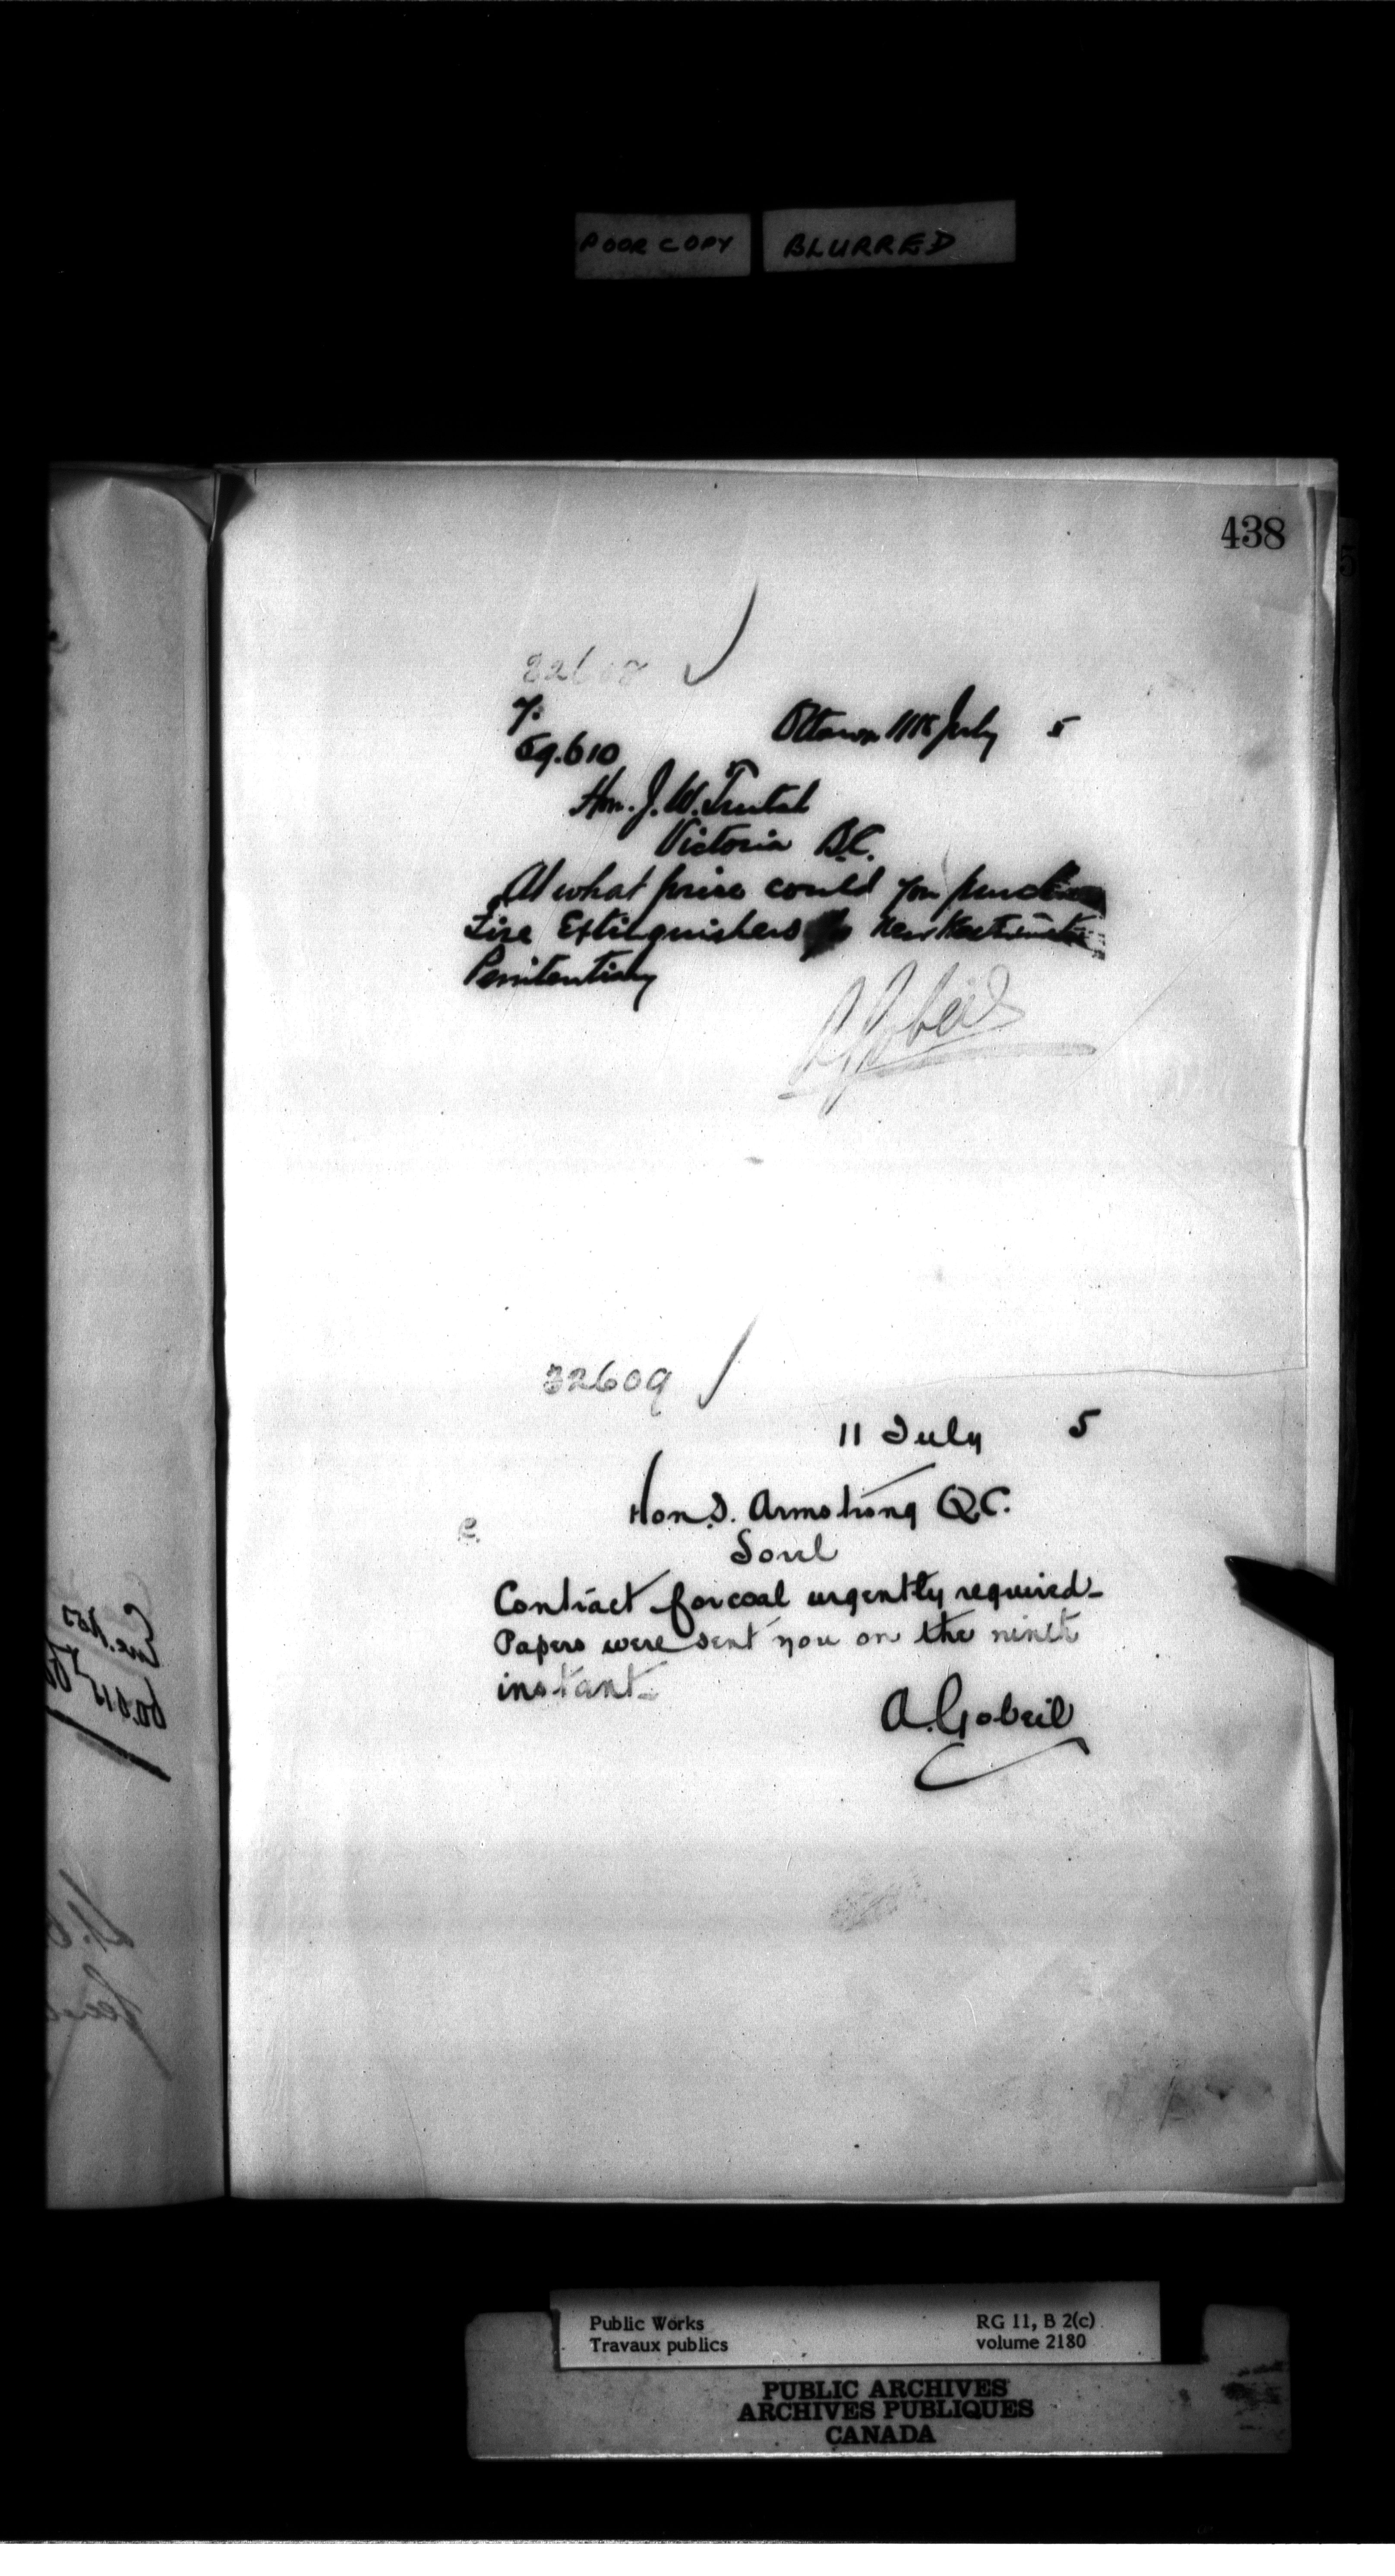 POOR COPY BLURRED
438
32608
59.610
Ottawa 11th July 5
Hon. J. W. Trutch
Victoria B.C.
At what price could you purchase
Fire Extinguishers New Westminster
Penitentiary
A Gobeil
32609
11 July 5
Hon. J. Armstrong Q.C.
Sorel
e.
Contract for coal urgently required-
Papers were sent you on the ninth
instant-
A. Gobeil
Public Works RG 11, B 2(c)
Travaux publics volume 2180
PUBLIC ARCHIVES
ARCHIVES PUBLIQUES
CANADA